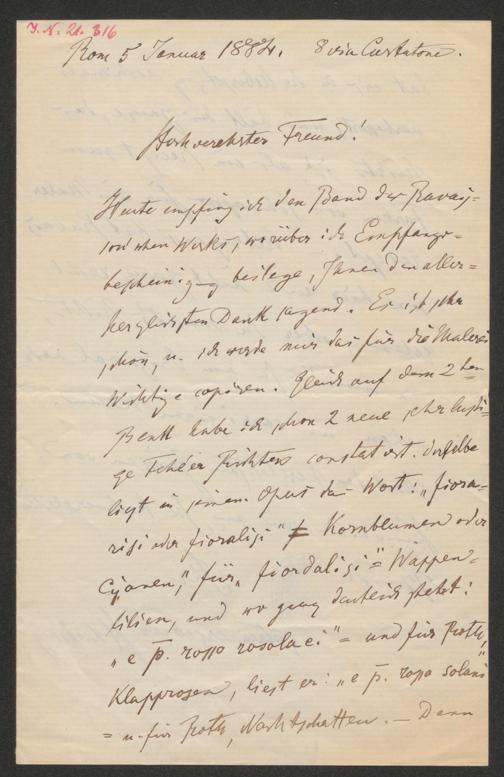 J. N. 21.316
Rom 5 Januar 1884. 8 via Curtatone.
Hochverehrter Freund!
Heute empfing ich den Band des Ravais-
son'schen Werks, worüber ich Empfangs-
bescheinigung beilege, Ihnen den aller-
herzlichsten Dank sagend. Es ist sehr
schön, u. ich werde mir das für die Malerei
Wichtige copiren. Gleich auf dem 2ten
habe ich schon 2 neue sehr lusti-
ge Fehler Richters constatirt. Derselbe
liest in seinem Opus das Wort: „fiora-
risi oder fioralisi" ≠ Kornblumen oder
Cyanen", für „fiordalisi" = Wappen-
lilien, und wo ganz deutlich steht:
„e p. rosso rosolacci" = und für Roth,
Klapprosen, liest er: „e p. rosso solani"
= u. für Roth, Nachtschatten. — Dann